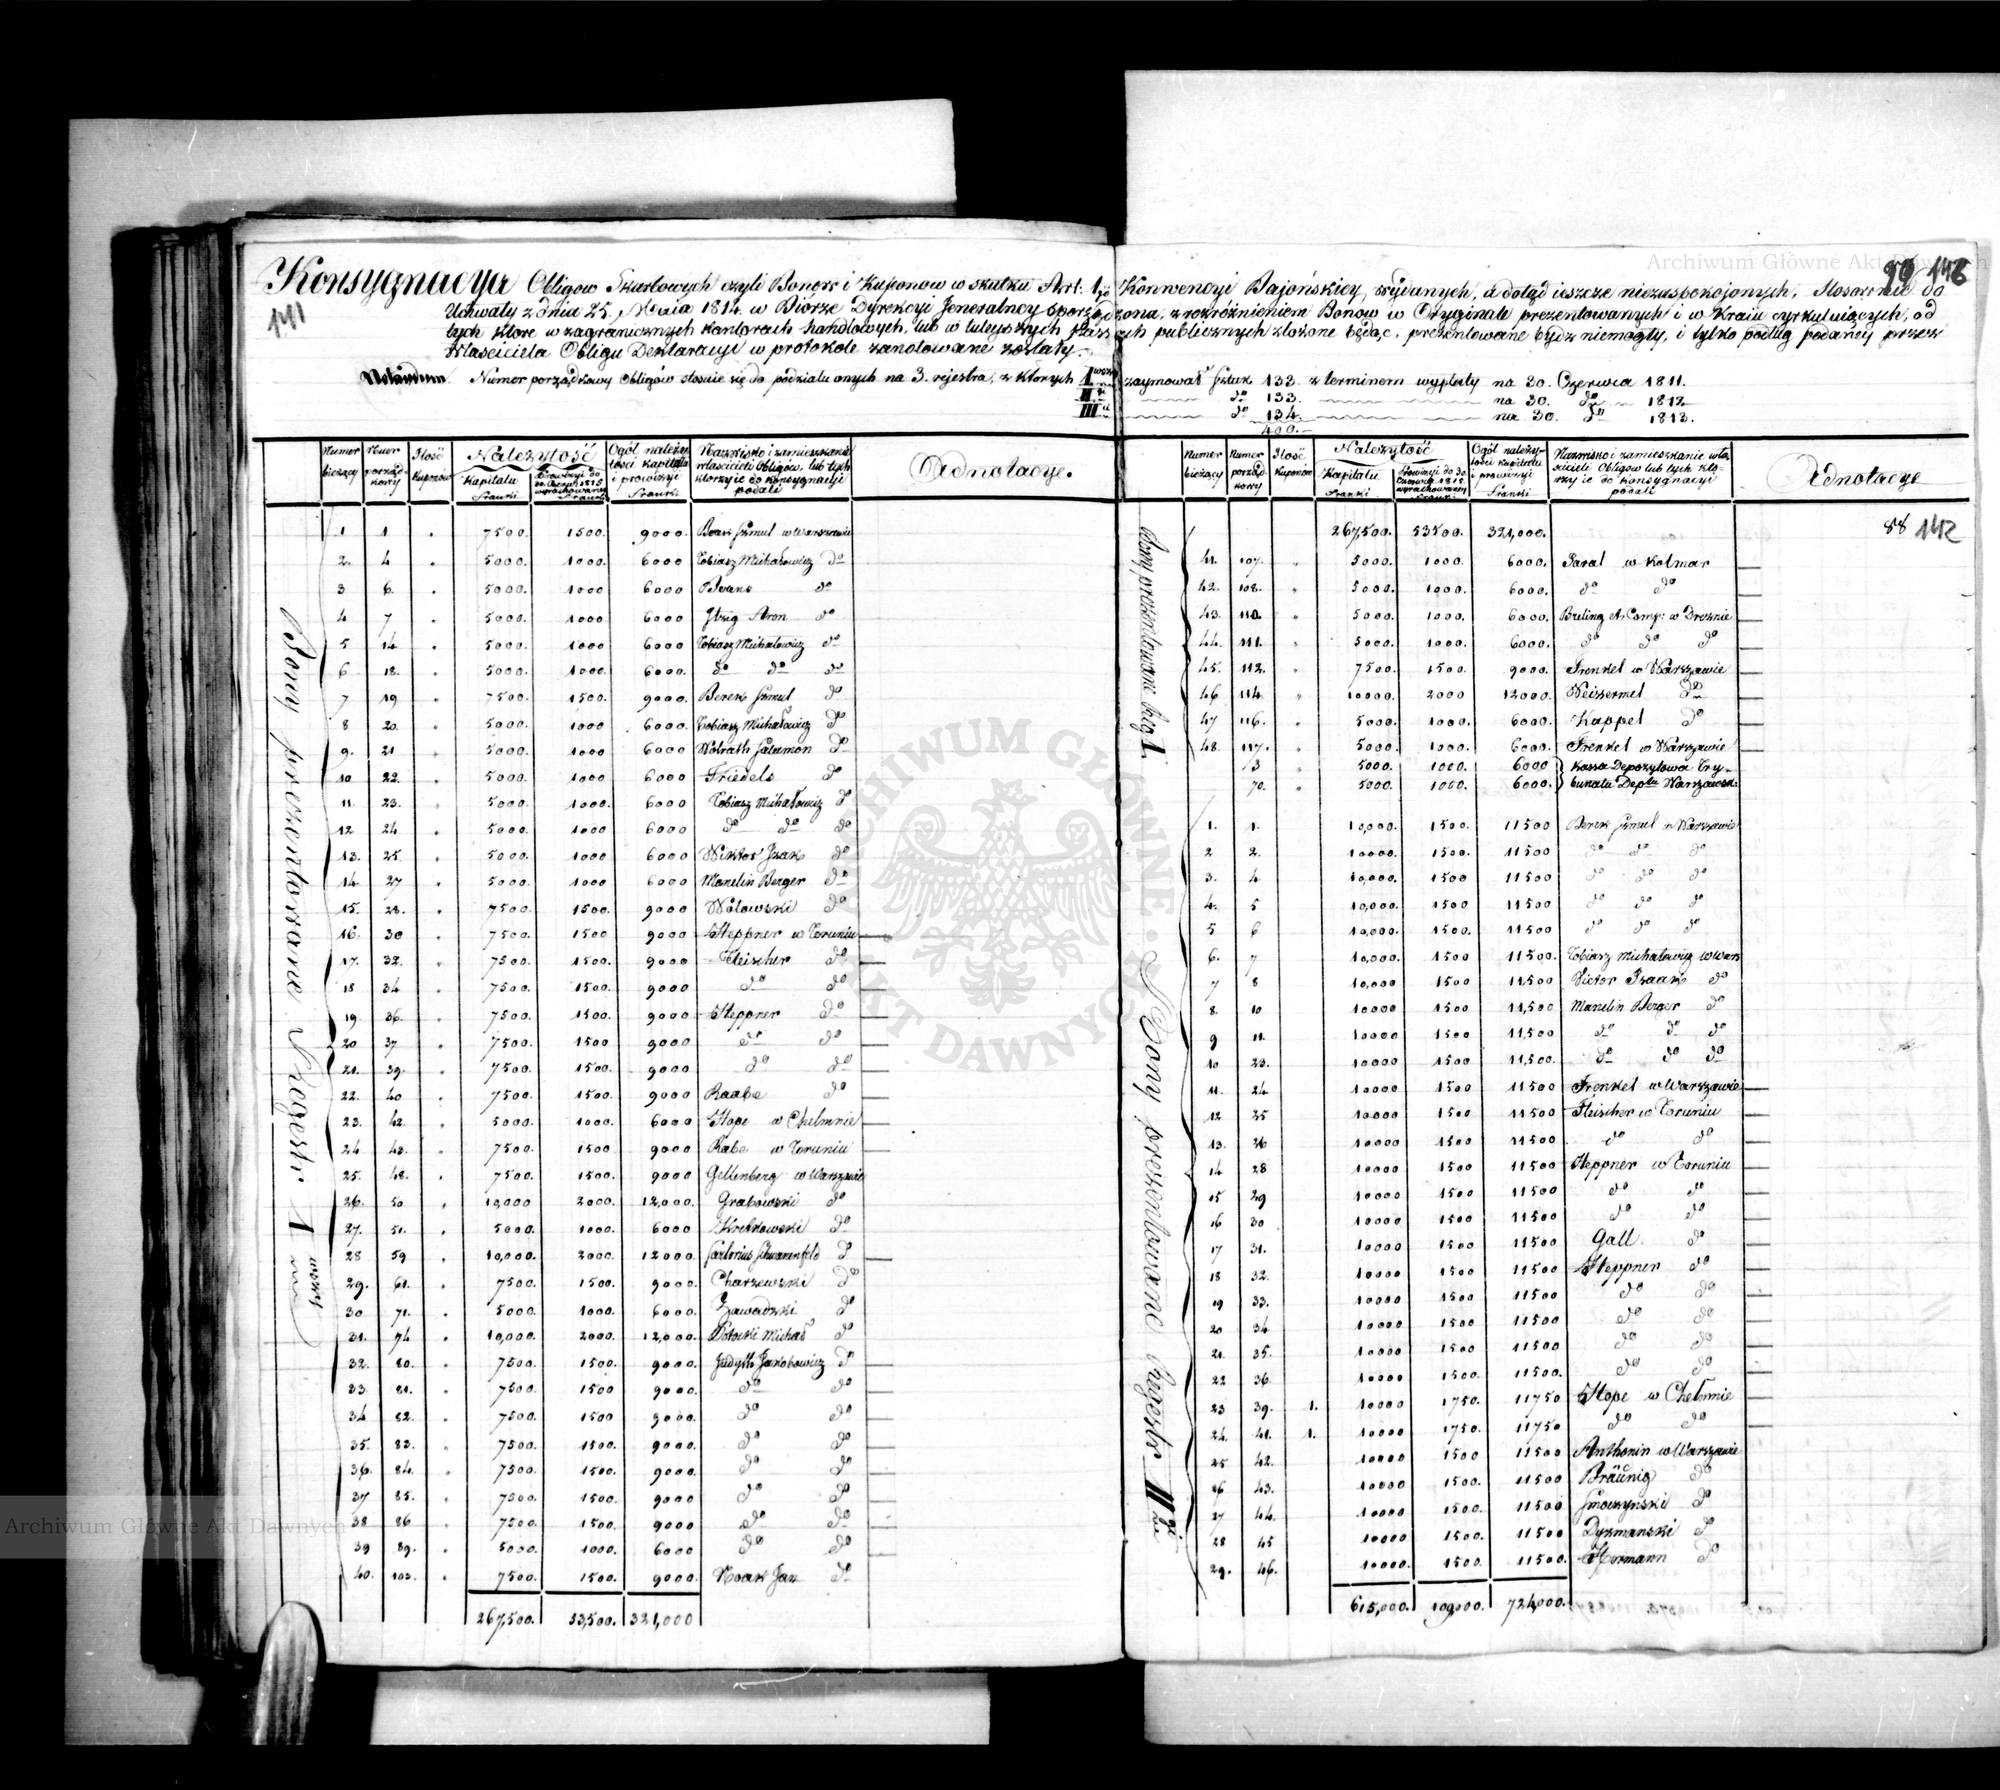 Konsygnacya Obligow Skarbowych czyli Bonow i Kuponow w skutku Art: 1go Konwencyi Bajońskiey wydanych, a dotąd ieszcze niezaspokojonych, Stosownie do
Uchwały z dnia 25. Maia 1814. w Biorze Dyrekcyi Jeneralney sporządzona, z rozróżnieniem Bonow w Oryginale prezentowanych i w Kraiu cyrkuluiących, od
tych które w zagranicznych kantorach handlowych, lub w tuteyszych Kassach publicznych złożone będąc, prezentowane bydz niemogły, i tylko podług podaney przez
Właściciela Obligu Deklaracyi w protokole zanotowane zostały.
99 146
141
Notandum. Numer porządkowy Obligów stosuie się do podziału onych na 3. rejestra, z których Iwszy zaymował Sztuk 133. z terminem wypłaty na 30. Czerwca 1811.
IIgi do 133. na 30. do 1812.
IIIci do 134. na 30. do 1813.
400.
Numer bieżący | Nuer porządkowy | Ilość Kuponów | Należytość | Kapitału Franki | Prowizyi do 30. Czerwca 1815 wyrachowaney Franki | Ogół należytości kapitału i prowizyi Franki | Nazwisko i zamieszkanie właścicieli Obligów, lub tych którzy ie do konsygnacyi podali | Adnotacye.
Bony prezentowane Regestr I wszy
1 1 7500. 1500. 9000. Berek Szmul w Warszawie
2. 4 5000. 1000. 6000 Tobiasz Michałowicz do
3 6. 5000. 1000 6000 Evans do
4 7 5000. 1000 6000 Itzig Aron do
5 14 5000. 1000 6000 Tobiasz Michałowicz do
6 18. 5000. 1000. 6000. do do do
7 19 7500. 1500. 9000. Berek Szmul do
8 20. 5000. 1000 6000. Tobiasz Michałowicz do
9. 21 5000. 1000 6000 Wolrath Salamon do
10 22. 5000. 1000 6000 Friedels do
11. 23. 5000. 1000. 6000 Tobiasz Michałowicz do
12 24 5000. 1000 6000 do do do
13. 25. 5000. 1000 6000 Wiktor Izak do
14. 27 5000. 1000 6000 Manelin Berger do
15. 28. 7500. 1500. 9000 Wołowski do
16. 30 7500. 1500 9000 Steppner w Toruniu
17. 32. 7500. 1500. 9000 Fleischer do
18 34 7500. 1500. 9000 do do
19 36. 7500. 1500. 9000 Steppner do
20 37 7500. 1500 9000 do do
21. 39. 7500. 1500. 9000 do do
22. 40 7500. 1500. 9000 Raabe do
23. 42. 5000. 1000. 6000 Hope w Chelmnie
24 43. 7500. 1500 9000 Rabe w Toruniu
25. 48. 7500. 1500. 9000 Gellenberg w Warszawie
26. 50 10,000 2000. 12,000. Grabowski do
27. 51. 5000. 1000. 6000 do
28 59 10,000. 2000. 12000. Sartorius Schwanenfeld do
29. 61. 7500. 1500. 9000. Charzewski do
30 71. 5000. 1000. 6000. Zawadzki do
31. 74 10,000. 2000. 12,000. Potocki Michał do
32. 80. 7500. 1500. 9000. Judyth Jakobowicz do
33 81. 7500. 1500 9000. do do
34 82. 7500. 1500 9000. do do
35. 83. 7500. 1500. 9000. do do
36. 84. 7500. 1500. 9000. do do
37 85. 7500. 1500. 9000 do do
38 86 7500. 1500. 9000 do do
39 89. 5000. 1000. 6000 do do
40. 103. 7500. 1500. 9000. Noak Jan do
267,500. 53,500. 321,000
Numer bieżący | Numer porządkowy | Ilość Kuponów | Należytość | Kapitału Franki | Prowizyi do 30. Czerwca 1815 wyrachowaney Franki | Ogół należytości kapitału i prowizyi Franki | Nazwisko i zamieszkanie właścicieli Obligów lub tych którzy ie do konsygnacyi podali | Adnotacye
88 142
Bony prezentowane Reg: I.
267,500. 53500. 321,000.
41. 107. 5000. 1000. 6000. Saral w Kolmar
42. 108. 5000. 1000. 6000. do do
43. 110. 5000. 1000. 6000. Breling et Comp: w Dreznie
44. 111. 5000. 1000. 6000. do do do
45. 112. 7500. 1500. 9000. Frenkel w Warszawie
46 114. 10000. 2000 12000. Weissermel do
47 116. 5000. 1000. 6000. Kappel do
48. 117. 5000. 1000. 6000. Frenkel w Warszawie
13 5000. 1000. 6000 Kassa Depozytowa Try-
70. 5000. 1000. 6000. bunału Deptu Warszawsk:
Bony prezentowane Regestr IIgi
1. 1. 10,000. 1500. 11500 Berek Szmul w Warszawie
2 2. 10000. 1500. 11500 do do do
3. 4 10,000. 1500 11500 do do do
4. 5 10,000. 1500 11500 do do do
5 6 10,000. 1500. 11500 do do do
6. 7 10,000. 1500 11500. Tobiasz Michałowicz w Wars
7 8 10,000 1500 11500 Victor Izaak do
8. 10 10000 1500 11,500 Manelin Berger do
9 11. 10000 1500 11,500 do do do
10 23. 10000 1500 11,500. do do do
11. 24 10000 1500 11500 Frenkel w Warszawie
12 25 10000 1500 11500 Fleischer w Toruniu
13. 26 10000 1500 11500 do do
14 28 10000 1500 11500 Steppner w Toruniu
15 29 10000 1500 11500 do do
16 30 10000 1500 11500 do do
17 31. 10000 1500 11500 Gall do
18 32. 10000 1500 11500 Steppner do
19 33. 10000 1500 11500 do do
20 34 10000 1500. 11500 do do
21 35. 10000 1500 11500 do do
22 36. 10000 1500. 11500 do do
23 39. 1. 10000 1750. 11750 Hope w Chelmnie
24. 41. 1. 10000 1750. 11750 do do
25 42. 10000 1500 11500 Anthonin w Warszawie
26 43. 10000 1500. 11500 Bräunig do
27 44. 10000 1500. 11500 Smoczynski do
28 45 10000 1500. 11500 Dyzmanski do
29. 46. 10000. 1500. 11500. Hormann do
615,000. 109,000. 724,000.
Archiwum Główne Akt Dawnych
Archiwum Główne Akt Dawnych
ARCHIWUM GŁÓWNE AKT DAWNYCH